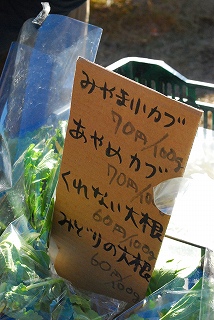 みやま小カブ
70円/100g
あやめカブ
70円/100g
くれない大根
60円/100g
みどりの大根
60円/100g